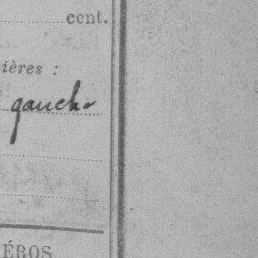 cent.
ières :
gauche
ÉROS